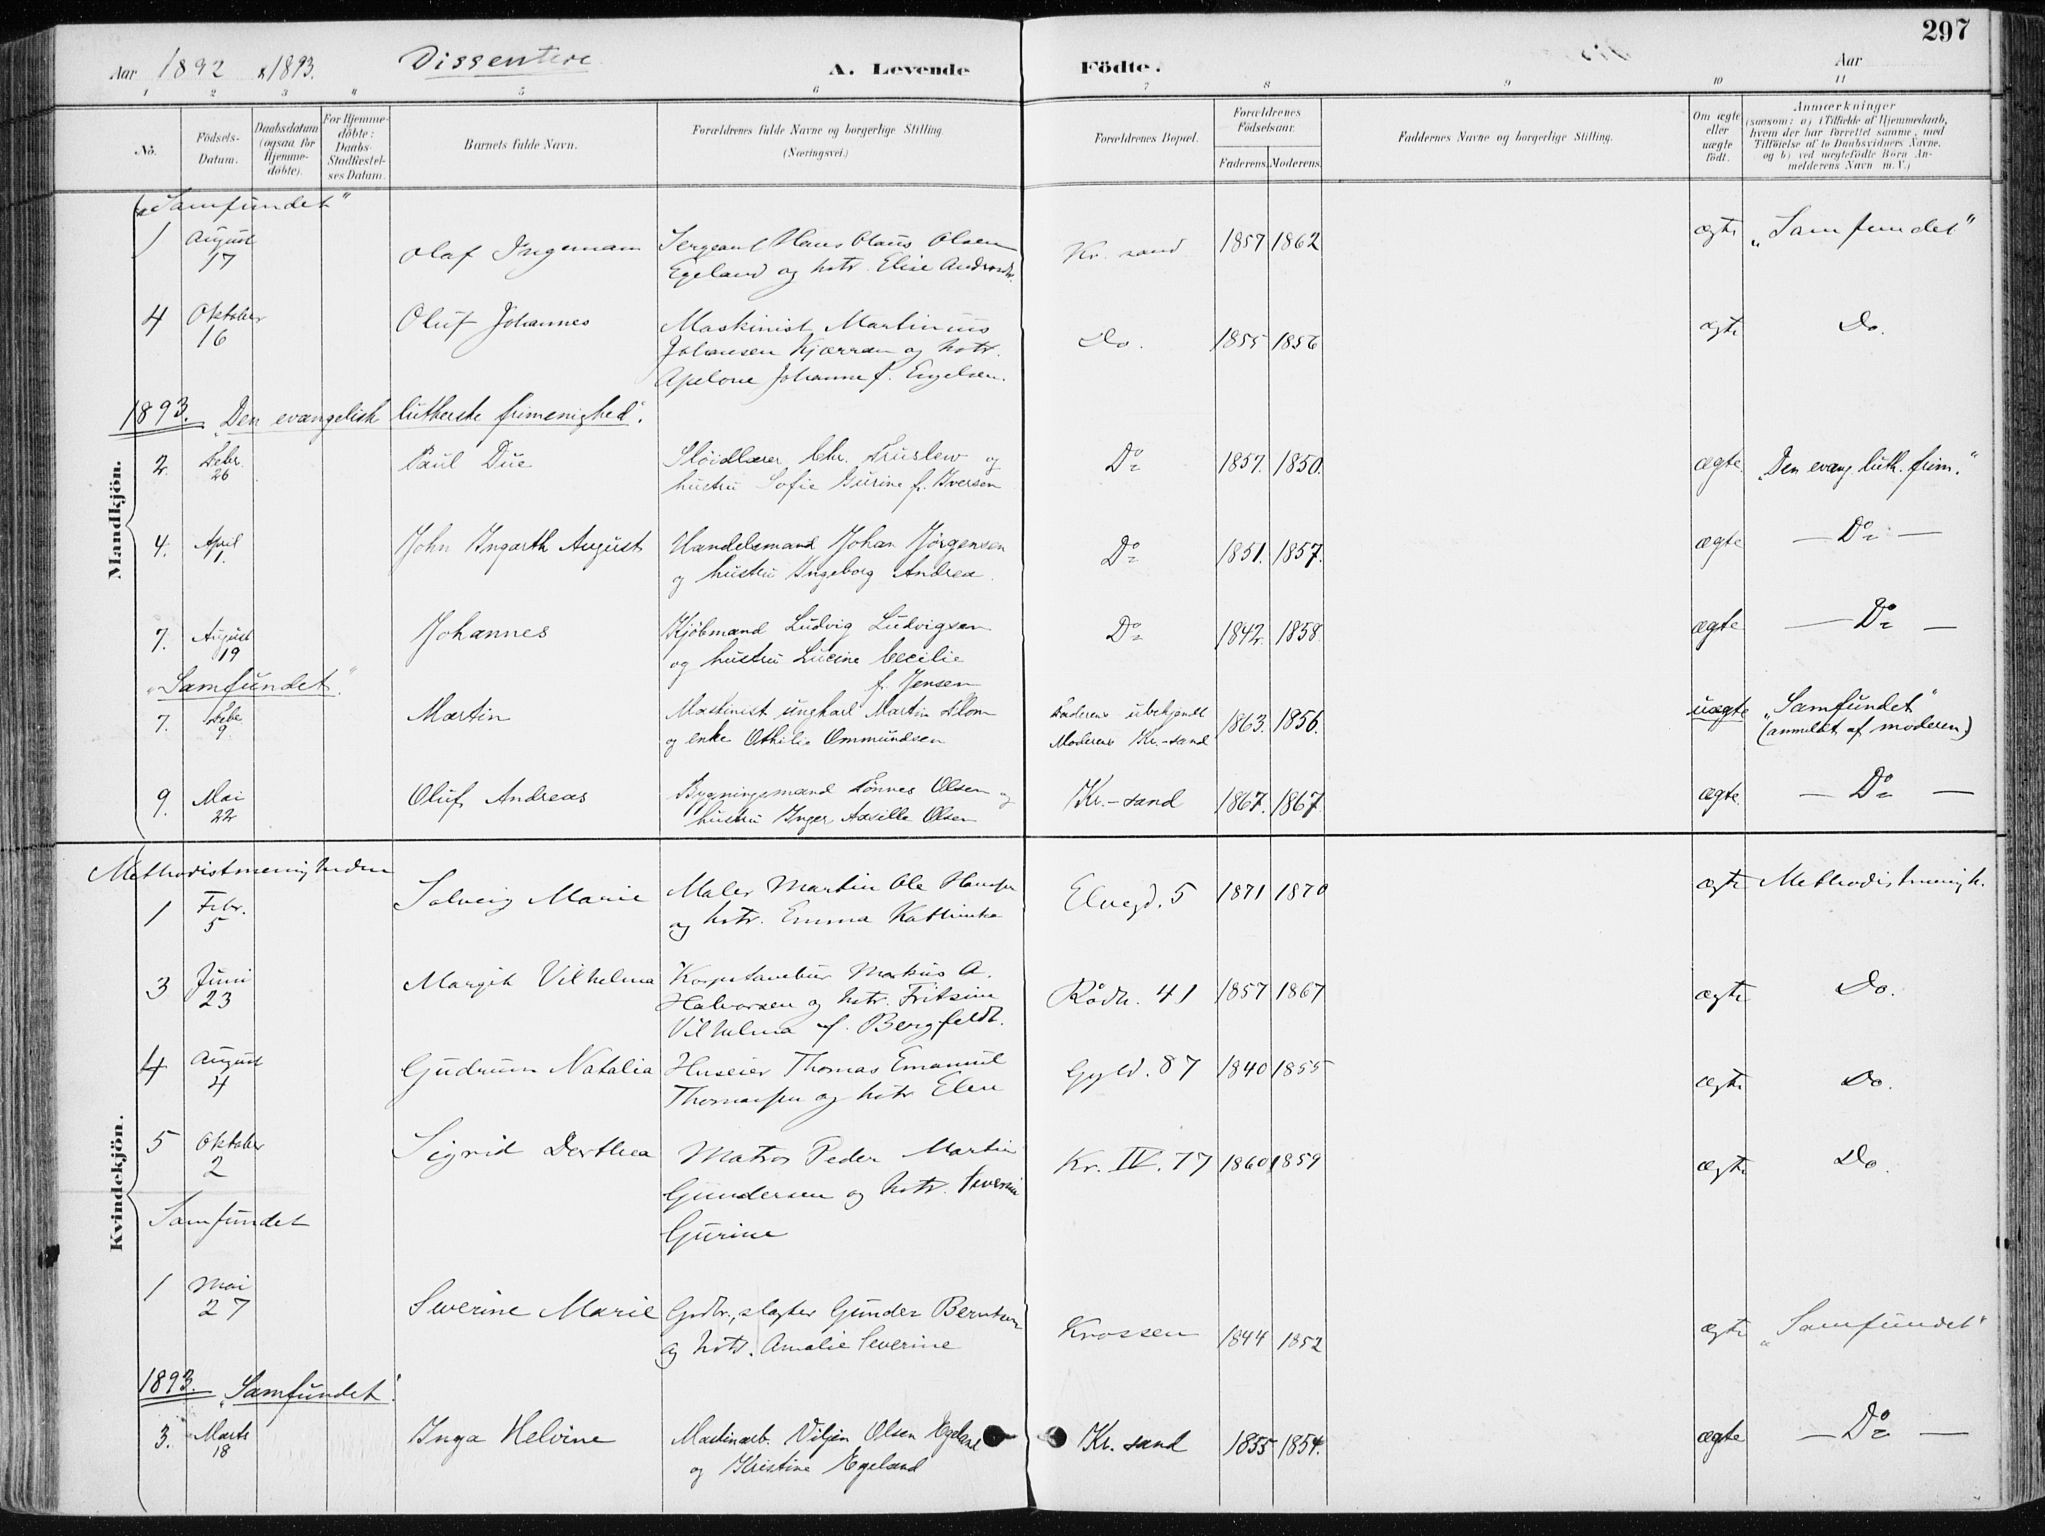 297
Aar 1892 & 1893. Dissentere A. Levende Födte. Aar
1 2 3 4 5 6 7 8 9 10 11
No. Födsels-Datum. Daabsdatum (ogsaa for Hjemme-døbte). For Hjemme-døbte: Daabs-Stadfæstel-ses Datum. Barnets fulde Navn. Forældrenes fulde Navne og borgerlige Stilling. (Næringsvei.) Forældrenes Bopæl. Forældrenes Födselsaar. Faderens. Moderens. Faddernes Navne og borgerlige Stilling. Om ægte eller uægte födt. Anmærkninger (saasom: a) i Tilfælde af Hjemmedaab, hvem der har forrettet samme, med Tilföielse af to Daabsvidners Navne, og b) ved uægtefödte Börn An-melderens Navn m. V.)
Mandkjön.
„Samfundet"
1 August 17 Olaf Ingemann Sergeant Hans Claus Olsen Kr. sand 1857 1862 ægte „Samfundet"
Egeland og hstr. Elise
4 Oktober 16 Oluf Johannes Maskinist Martinius Do. 1855 1856 ægte Do.
Johansen Kjærran og hstr.
Apelone Johanne f. Engelsen.
1893. „Den evangelisk lutherske frimenighed".
2. Febr. 26 Paul Due Sløidlærer Chr. Truslew og Do 1857. 1850. ægte „Den evang. luth. frim."
hustru Sofie Gurine f. Iversen
4. April 1. John Ingarth August Handelsmand Johan Jörgensen Do 1851. 1857. ægte — Do —
og hustru Ingeborg Andrea.
7. August 19 Johannes Kjöbmand Ludvig Ludvigsen Do 1842. 1858. ægte — Do —
og hustru Lucine Cecilie
f. Jensen
„Samfundet".
7. Febr. 9. Martin Maskinist ungkarl Martin Blom Faderens ubekjendt 1863. 1856. uægte „Samfundet"
og enke Othilie Ommundsen Moderens Kr.-sand (anmeldt af moderen)
9. Mai 22 Oluf Andreas Bygningsmand Tönnes Olsen og Kr.-sand 1867. 1867. ægte — Do —
hustru Inger Olsen
Kvindekjön.
Methodistmenigheden
1 Febr. 5 Solveig Marie Maler Martin Ole Hansen Elvegd. 5 1871 1870 ægte Methodistmenigh.
og hstr. Emma Kathinka
3 Juni 23 Margit Vilhelma Markus A. Rådh. 41 1857 1867 ægte Do.
Halvorsen og hstr. Fritsine
Vilhelma f. Bergfeldt.
4 August 4 Gudrun Natalia Huseier Thomas Emanuel Gyld. 87 1840 1855 ægte Do.
Thomassen og hstr Elen
5 Oktober 2 Sigrid Dorthea Matros Peder Martin Kr. IV. 77 1860 1859 ægte Do.
Gundersen og hstr. Severin
Gurine
Samfundet
1 Mai 27 Severine Marie Grdbr., slagter Gunder Berntsen Krossen 1844 1852 ægte „Samfundet"
og hstr. Amalie Severine
1893. „Samfundet".
3. Marts 18 Inga Helvine Maskinarb. Viljen Olsen Egeland Kr. sand 1855 1854. ægte — Do —
og Kristine Egeland